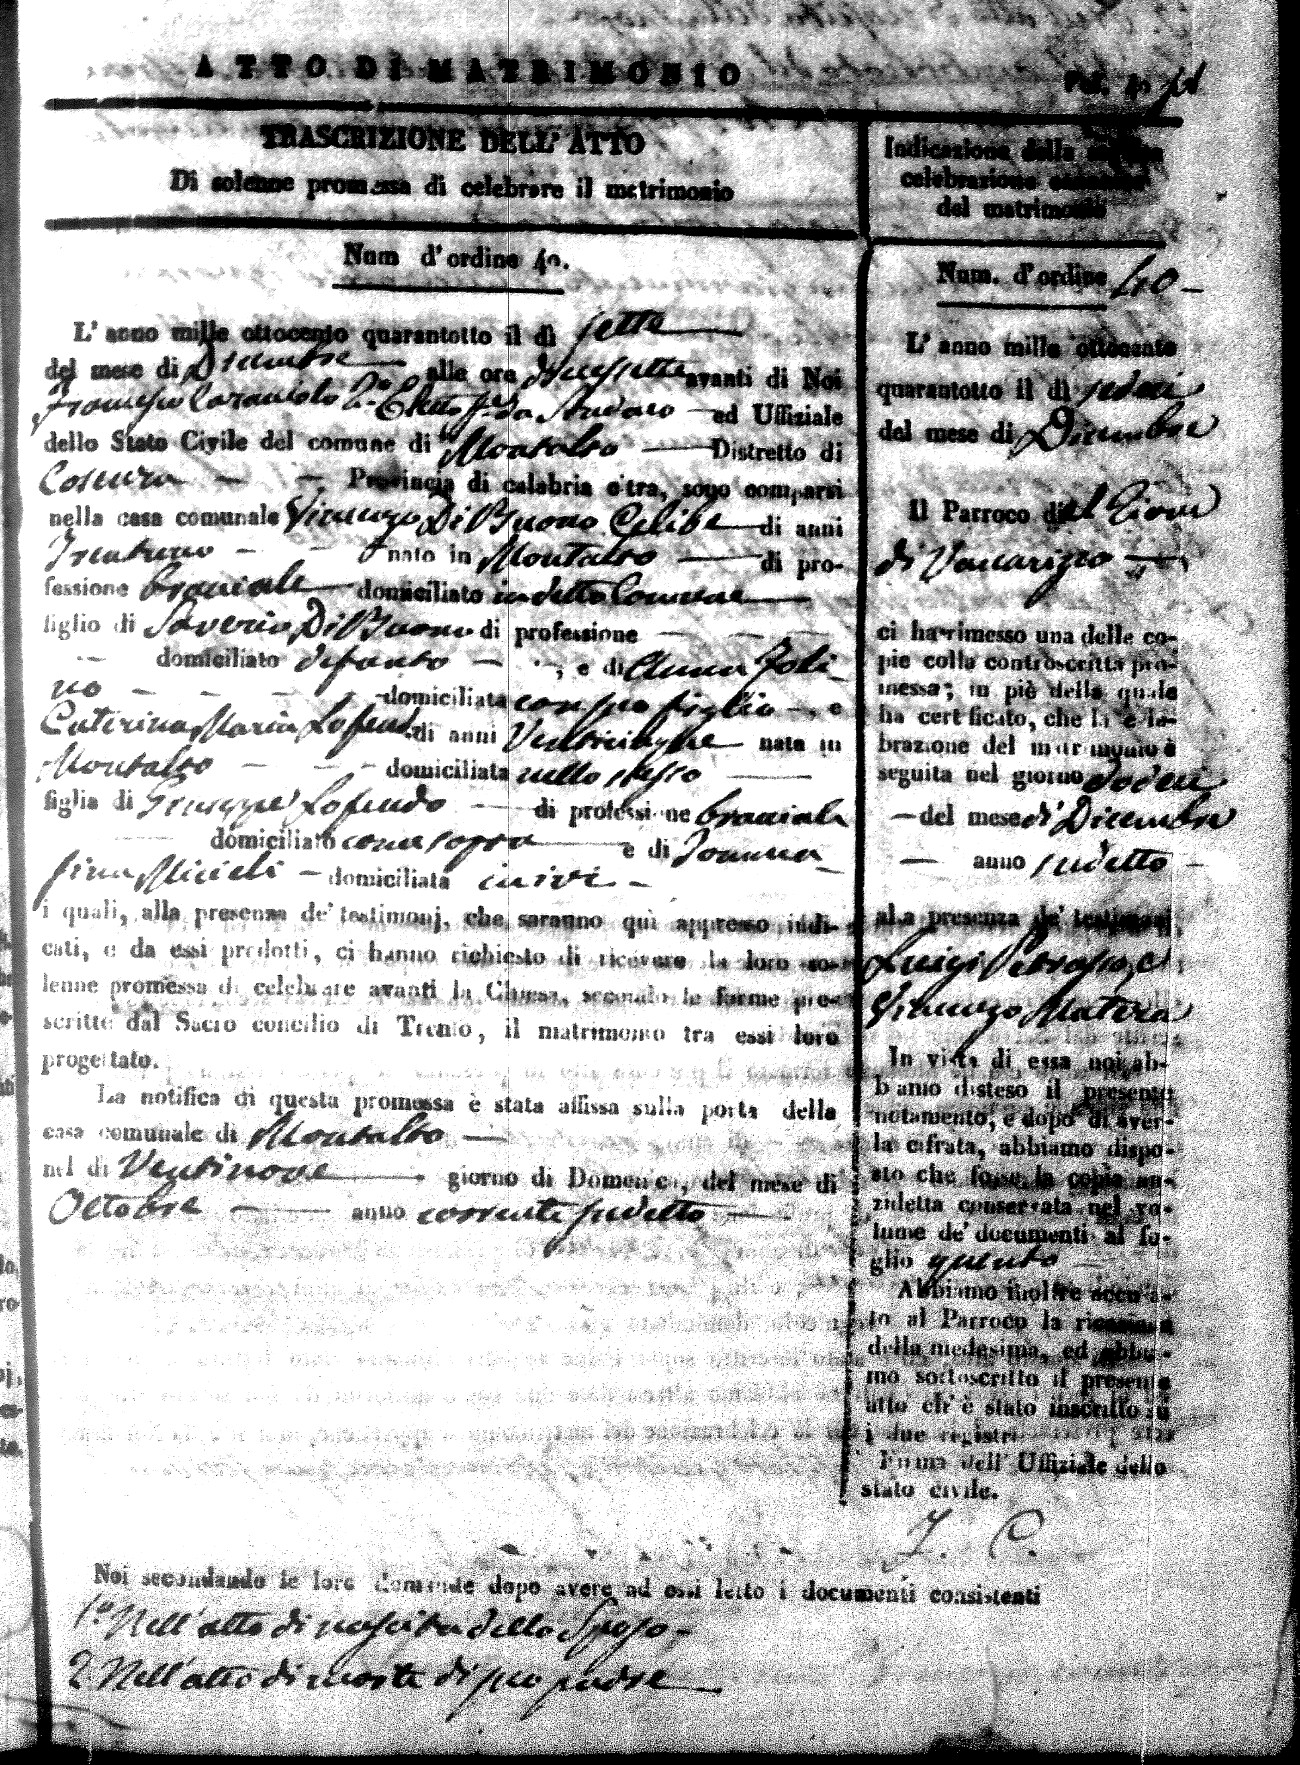 ATTO DI MATRIMONIO
Fol. 40
TRASCRIZIONE DELL' ATTO
Di solenne promessa di celebrare il matrimonio
Num d' ordine 40.
L' anno mille ottocento quarantotto il dì sette
del mese di Dicembre alle ore diecisette avanti di Noi
Francesco Caraciolo 2.° Eletto ed Uffiziale
dello Stato Civile del comune di Montalto Distretto di
Cosenza Provincia di calabria citra, sono comparsi
nella casa comunale Vincenzo Di Buono Celibe di anni
Trentuno nato in Montalto di pro-
fessione bracciale domiciliato in detto Comune
figlio di Saverio Di Buono di professione
domiciliato defunto , e di Anna Foli
no domiciliata con suo figlio , e
Caterina Maria Lofeudo di anni Venticinque nata in
Montalto domiciliata nello stesso
figlia di Giuseppe Lofeudo di professione bracciale
domiciliato come sopra e di Joanna
fina Micieli domiciliata in ivi
i quali, alla presenza de' testimonj, che saranno quì appresso indi-
cati, e da essi prodotti, ci hanno richiesto di ricevere la loro so-
lenne promessa di celebrare avanti la Chiesa, secondo le forme pre-
scritte dal Sacro concilio di Trento, il matrimonio tra essi loro
progettato.
La notifica di questa promessa è stata affissa sulla porta della
casa comunale di Montalto
nel di Ventinove giorno di Domenica, del mese di
Ottobre anno corrente sudetto
Indicazione della
celebrazione
del matrimonio
Num. d' ordine 40
L' anno mille ottocento
quarantotto il dì sedeci
del mese di Dicembre
Il Parroco di
di Vaccarizzo
ci ha rimesso una delle co-
pie colla controscritta pro-
messa; in piè della quale
ha certificato, che la cele-
brazione del matrimonio è
seguita nel giorno dodeci
del mese di Dicembre
anno sudetto
alla presenza de' testimonj
Luigi Petrasso, e
Vincenzo Matera
In vista di essa noi ab-
biamo disteso il presente
notamento, e dopo di aver-
la cifrata, abbiamo dispo-
sto che fosse la copia an-
zidetta conservata nel vo-
lume de' documenti al fo-
glio quinto
Abbiamo inoltre accusa-
to al Parroco la ricezione
della medesima, ed abbia-
mo sottoscritto il presente
atto ch' è stato inscritto su
i due registri.
Firma dell' Uffiziale dello
stato civile.
F. C.
Noi secondando le loro domande dopo avere ad essi letto i documenti consistenti
1.° Nell' atto di nascita dello Sposo
2. Nell' atto di morte di suo padre